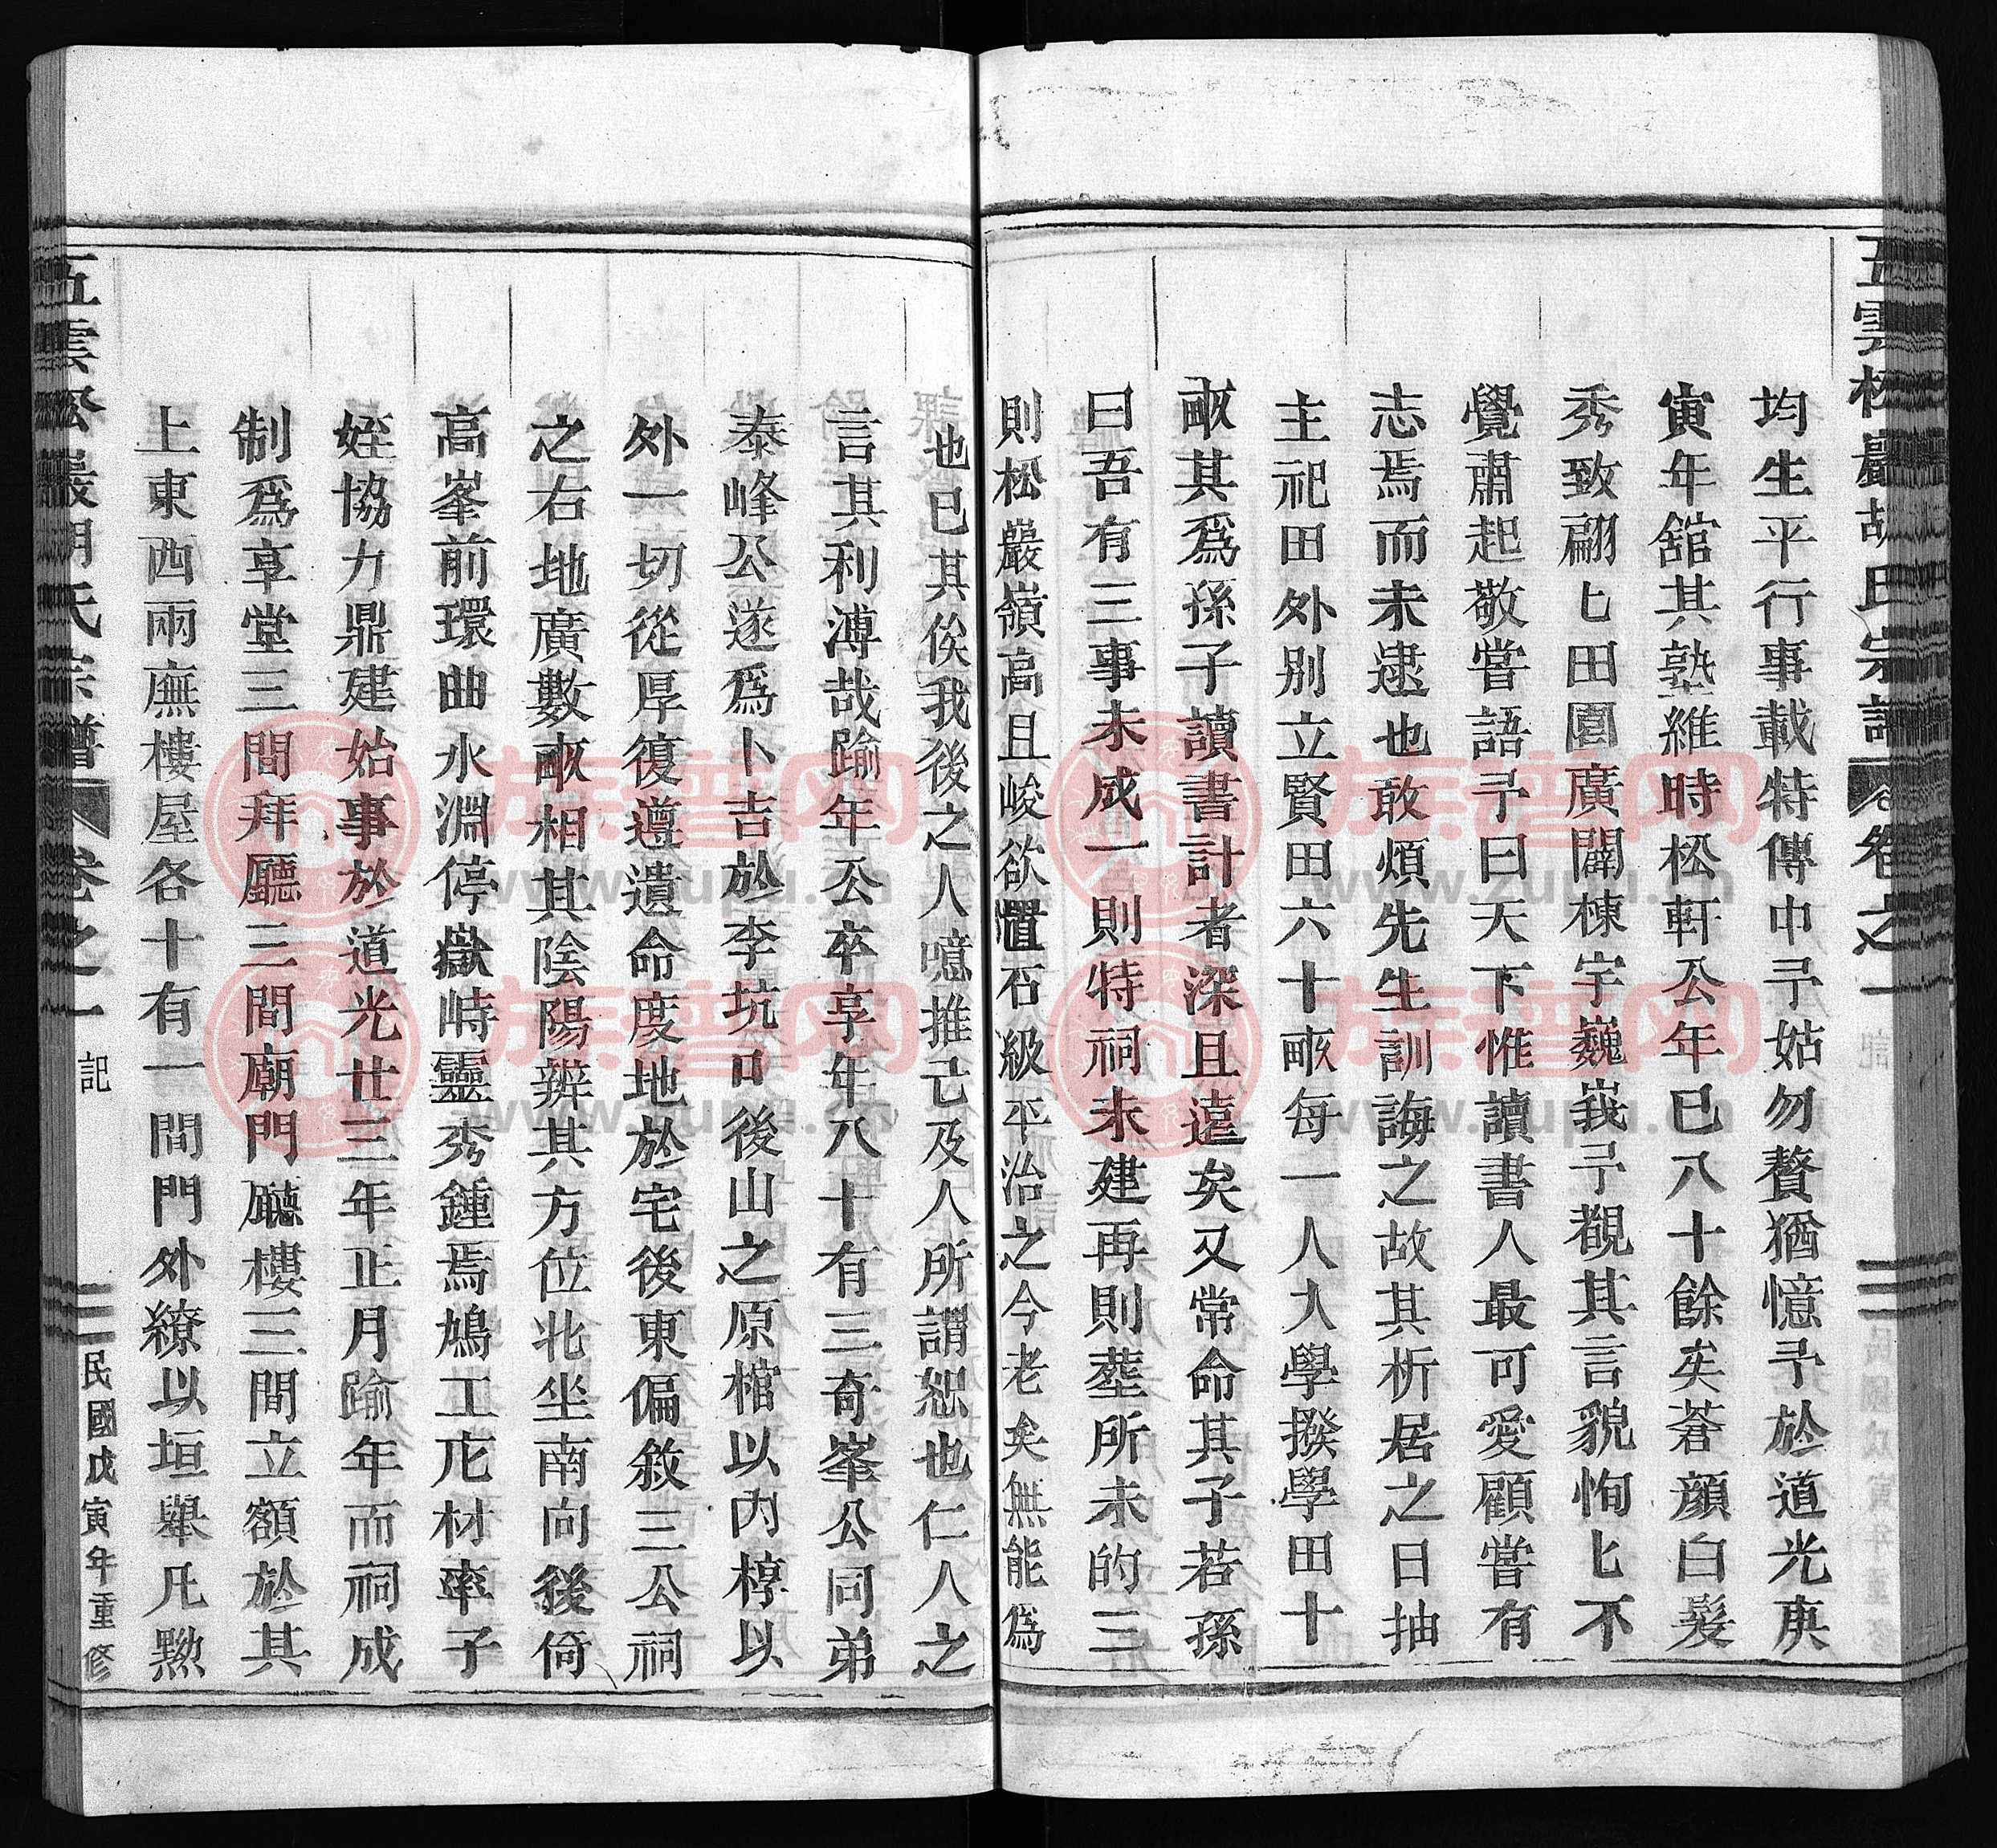 五雲松巖胡氏宗譜 卷之一
均生平行事載特傳中予姑勿贅猶憶予於道光庚
寅年舘其塾維時松軒公年已八十餘矣蒼顔白髮
秀致翩匕田園廣闢棟宇巍峩予覩其言貌恂匕不
覺肅起敬嘗語予曰天下惟讀書人最可愛顧嘗有
志焉而未逮也敢煩先生訓誨之故其析居之日抽
主祀田外别立賢田六十畝每一人入學撥學田十
畝其爲孫子讀書計者深且遠矣又常命其子若孫
曰吾有三事未成一則特祠未建再則塟所未的三
則松巖嶺高且峻欲置石級平治之今老矣無能爲
也已其俟我後之人噫推己及人所謂恕也仁人之
言其利溥哉踰年公卒享年八十有三奇峯公同弟
泰峰公遂爲卜吉於李坑口後山之原棺以內椁以
外一切從厚復遵遺命度地於宅後東偏敘三公祠
之右地廣數畝相其陰陽辨其方位北坐南向後倚
高峯前環曲水淵停嶽峙靈秀鍾焉鳩工庀材率子
姪協力鼎建始事於道光廿三年正月踰年而祠成
制爲享堂三間拜廳三間廟門廳樓三間立額於其
上東西兩廡樓屋各十有一間門外繚以垣舉凡黝
五雲松巖胡氏宗譜 卷之一 記 民國戊寅年重修
族譜网
www.zupu.cn
族譜网
www.zupu.cn
族譜网
www.zupu.cn
族譜网
www.zupu.cn